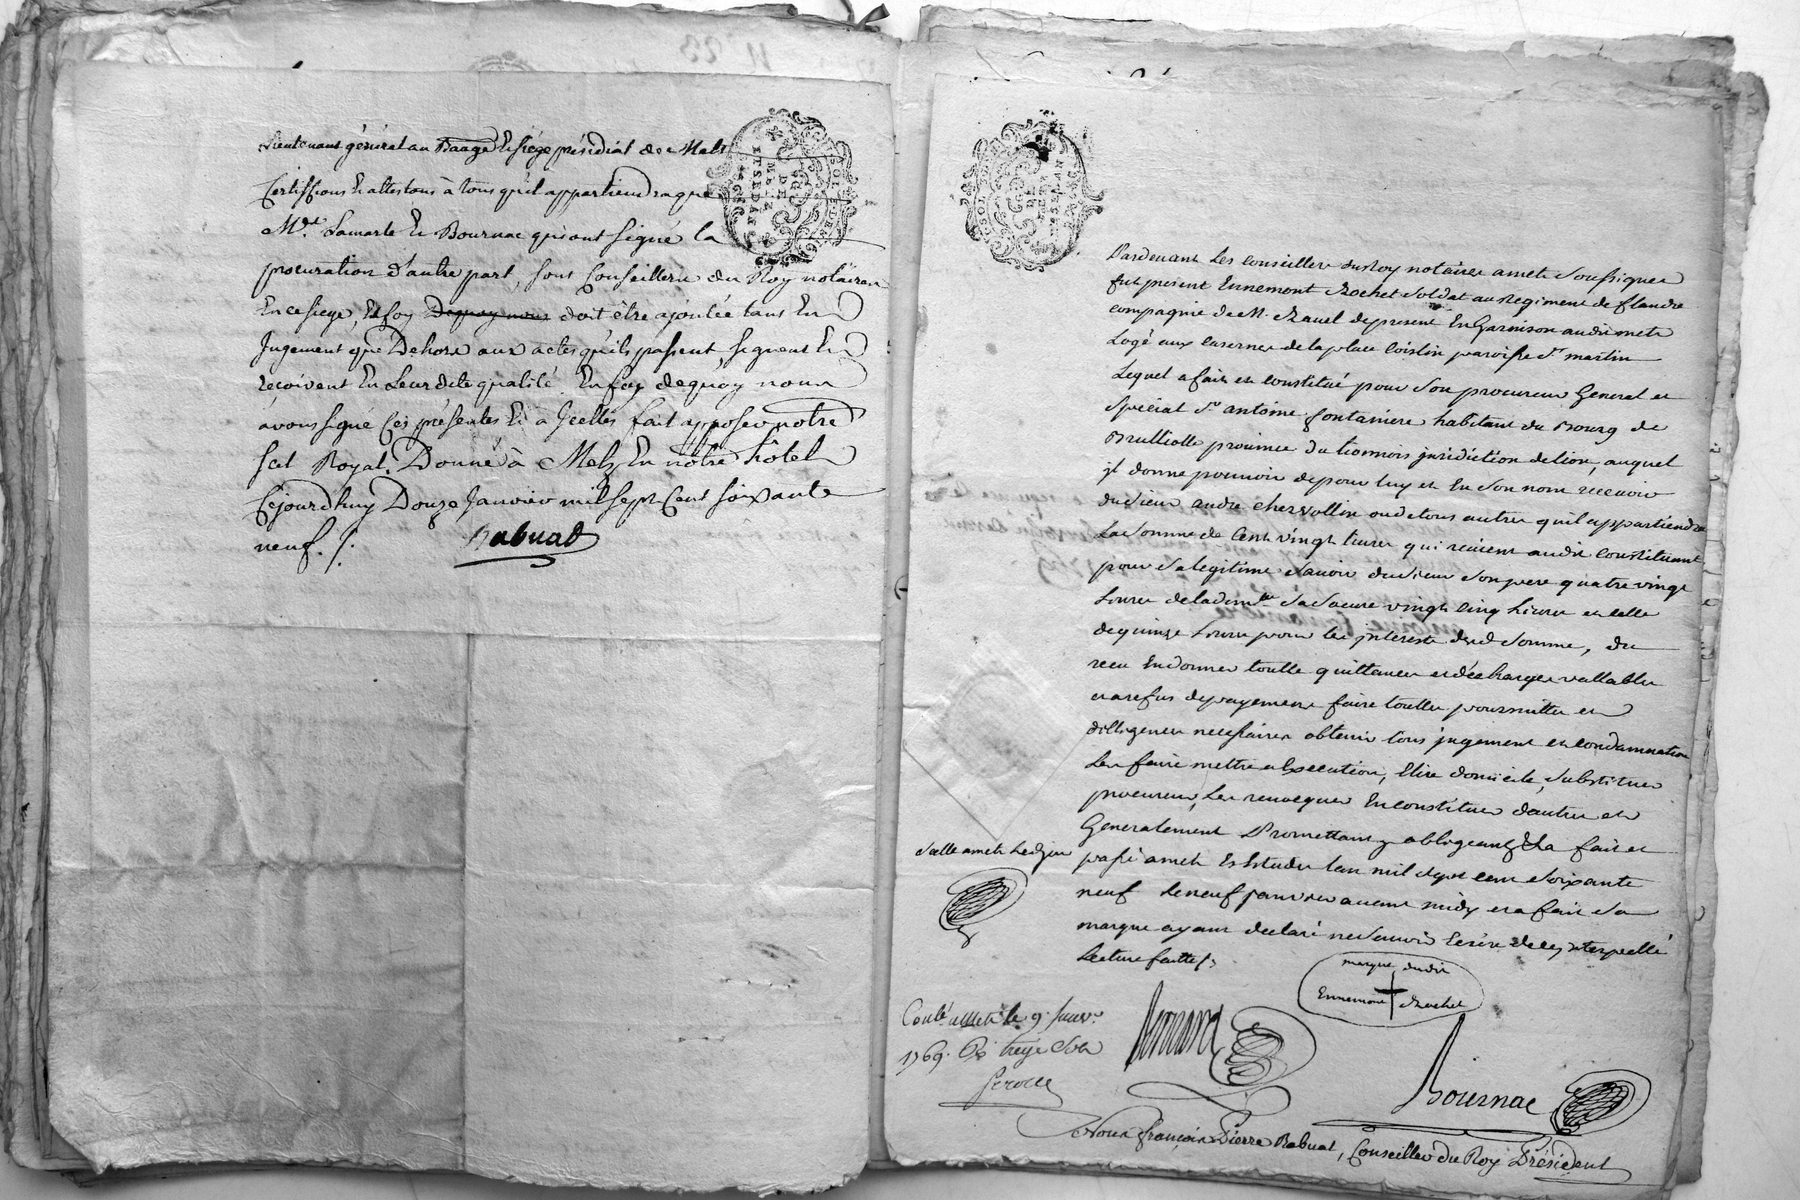 Lieutenant général au Baage Et siége présidial de Metz
Certiffions Et attestons à tous qu'il appartiendra que
Mrs. Lamarle Et Bournac qui ont signé la
procuration d'autre part, sont Conseillers du Roy notaires
En ce siege, Et foy De quoy nous doit être ajoutée tant En
Jugement que Dehors aux actes qu'ils passent, signent Et
reçoivent En Leur dite qualité. En foy de quoy nous
avons signé Ces présentes Et à Jcelles fait apposer notre
scel Royal. Donné à Metz En notre hôtel
Cejourdhuy Douze Janvier mil sept Cent soixante
neuf. /.
Rabuat
Pardevant Les conseillers du Roy notaires a metz Soussignez
fut present Ennemont Rochet Soldat au Regiment de flandre
compagnie de M. Ravel de present En Garnison audit metz
Logé aux casernes de la place Coislin paroisse St martin
Lequel a fait et constitué pour Son procureur General et
Special Sr antoine fontaniere habitant du Bourg de
Brulliolle province du lionnois juridiction de lion, auquel
jl donne pouvoir de pour luy et En Son nom recevoir
du Sieur andré chervollin ou de tous autres qu'il appartiendra
La Somme de Cent vingt Livres qui revient audit constituant
pour Sa legitime Savoir du Sieur Son pere quatre vingt
Livres de la dem.lle Sa Soeure vingt Cinq Livres et celle
de quinze Livres pour les jnterests dud Somme, du
recu En donner toutte quittances et décharges vallables
et a refus de payement faire touttes poursuittes et
dilligences necessaires obtenir tous jugement et condamnation
Les faire mettre a Execution, Elire domicile, Substituer
procureurs, Les revoequer En constituer d'autres et
Generalement Promettant obligeant &a fait et
passé a metz Es Etudes Lan mil Sept cent Soixante
neuf Le neuf janvier avant midy et a fait Sa
marque ayant declaré ne Savoir Ecrire de ce jnterpellé
Lecture faitte /.
Scellé a metz Led jour
marque dudit
Ennemont Rochet
Contlé a Metz le 9. Janvr.
1769. Rs treize Sols
Bournac
Nous françois Pierre Rabuat, Conseiller du Roy Président